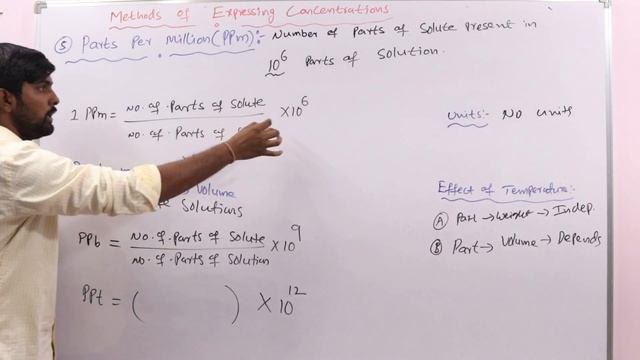 Methods of Expressing Concentrations
⑤ Parts Per Million (PPm):- Number of Parts of Solute present in
10⁶ Parts of Solution.
1 PPm = No. of. Parts of Solute / No. of. Parts of × 10⁶
Units:- No units
Volume
Solutions
Effect of Temperature:-
Ⓐ Part → Weight → Indep.
Ⓑ Part → Volume → Depends
PPb = No. of. Parts of Solute / No. of. Parts of Solution × 10⁹
PPt = ( ) × 10¹²